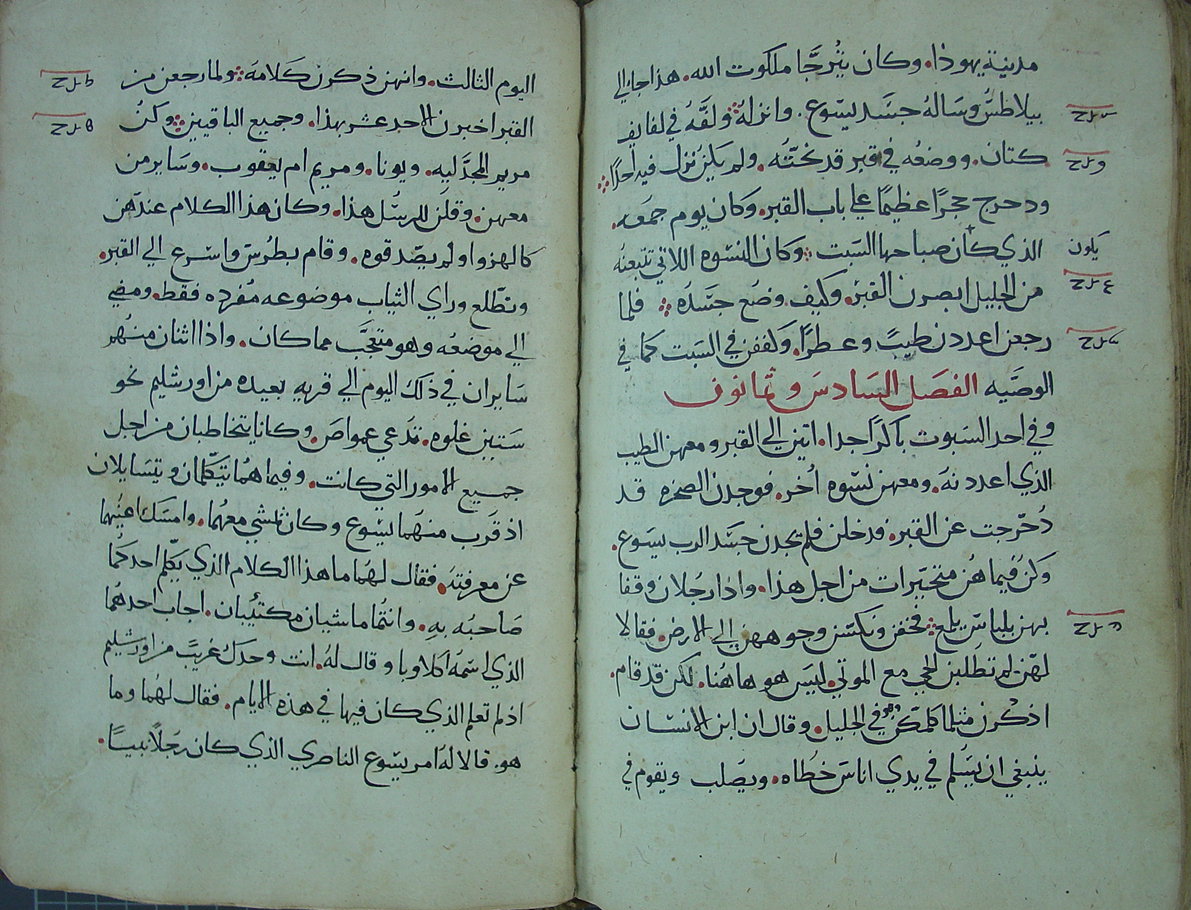 مدينة يهوذا. وكان يُترجَّا ملكوت الله. هذا جا الي
بيلاطسُ وساله جسَد يسوع. وانزلهُ ولفَّهُ في لفايف
كتان. ووضعُه في قبر قد نحتُه. ولم يكن نزل فيه احدًا
ودحرج حجرًا عظيمًا علي باب القبر. وكان يوم جمعَه.
الذي كان صباحها السَبت وكان النسْوه اللاتي تتبعنهُ
يكون
من الجليل ابصرن القبر. وكيف وضُع جسَدُه فلما
رجعن اعددن طيبً وعطرًا. وكففن في السَبت كما في
الوصَيه الفصَل السَادسَ وثمانون
وفي احد السَبوت باكرًا جدا. اتين الي القبر ومعهن الطيب
الذي اعددنه. ومعهن نسْوه اُخر. فوجدن الصخره قد
دُحرجت عن القبر. فدخلن فلم يجدن جسَد الرب يسوع.
وكنُ فيما هُن متحيرات من اجل هذا. واذا رجُلان وقفا
بهن بلباسَ يلمع فخفن ونكسْن وجوههن الي الارض. فقالا
لهُن لم تطلبن الحي مع الموتي. ليسَ هو هاهُنا. لكن قد قام.
اذكرن مثلما كلمكن وهو في الجليل. وقال ان ابن الانسْان
ينبغي ان يسَلم في يدي اناسَ خطاه. ويصَلب ويقوم في
اليوم الثالث. وانهن ذكرن كلامه ولما رجعن من
القبر اخبرن الاحد عشر بهذا. وجميع الباقين وكنُ
مريم المجدَليه. ويونا. ومريم ام يعقوب. وسَاير من
معهن. وقلن للرسُل هذا. وكان هذا الكلام عندهن
كالهزوا ولم يصَدقوه. وقام بطرسَ واسرع الي القبر.
وتطّلع وراي الثياب موضوعه مُفرده فقط. ومضي
الي موضعُه وهو متعجَب مما كان. واذا اثنان منهُم
سَايران في ذلك اليوم الي قريه بعيده من اورشليم نحو
سَتين غلوه. تدعي عمواصَ. وكانا يتخاطبان من اجل
جميع الامور التي كانت. وفيما هُما يتكلمان ويتسَايلان
اذ قرب منهُما يسوع وكان يمشي معهُما. وامسَك اعينهُما
عن معرفته. فقال لهُما ما هذا الكلام الذي يكلم احدكُما
صَاحبُه به. وانتُما ماشيان مكتئبان. اجاب احدهُما
الذي اسمُه اكلاوبا وقال لهُ. انت وحدك غريبً من اورشليم
اذ لم تعلم الذي كان فيها في هذه الايام. فقال لهُما وما
هو. قالا لهُ امر يسوع الناصري الذي كان رجُلاً نبيًا.